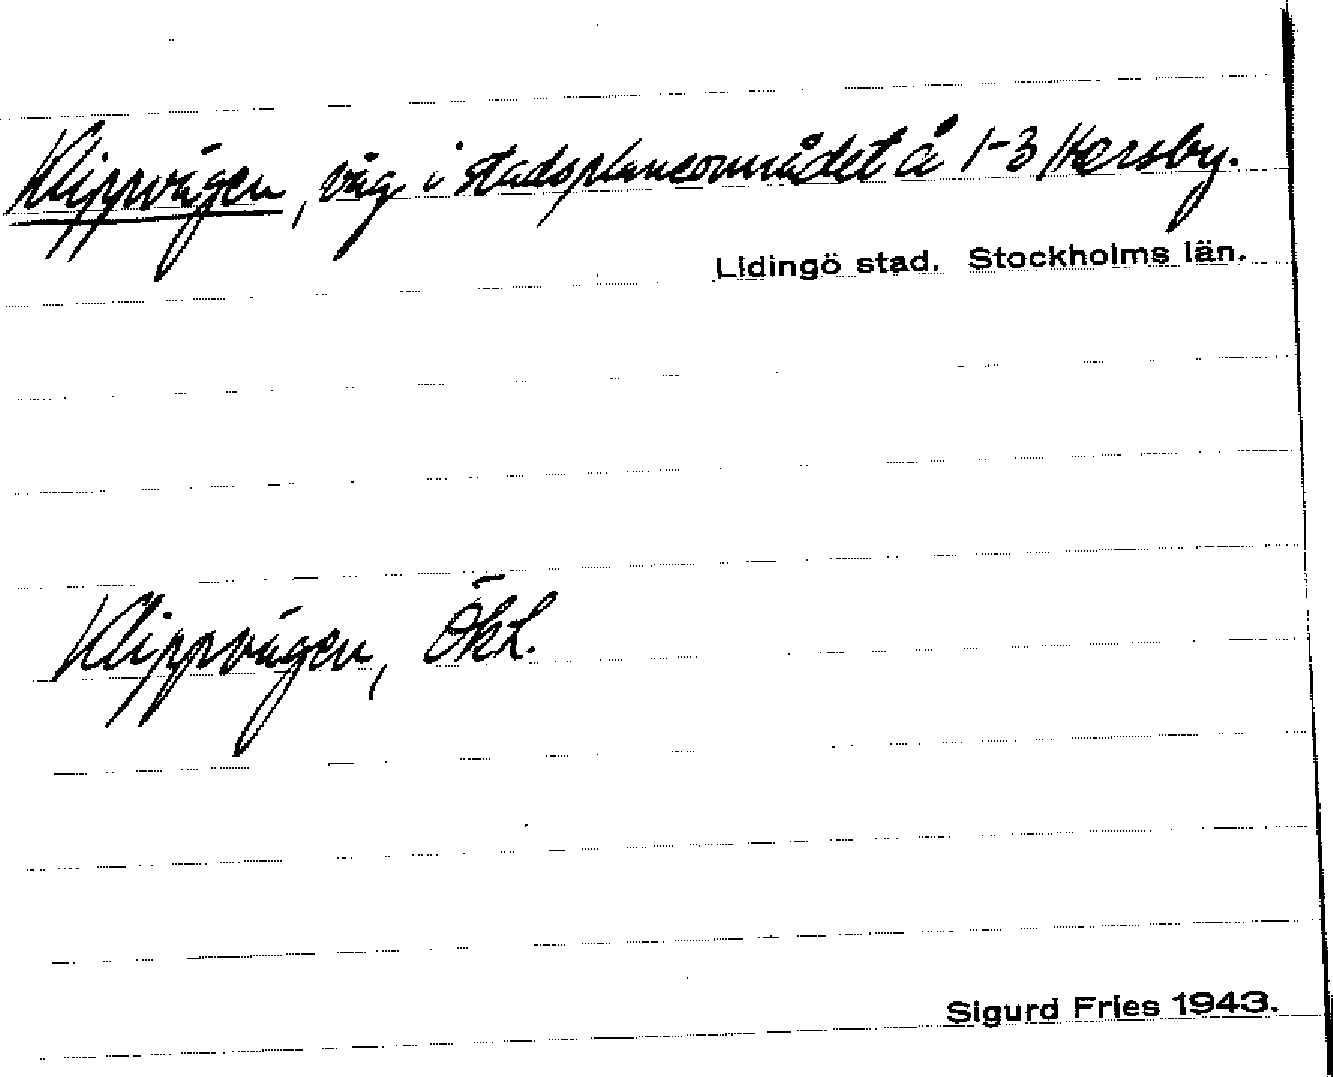 Klippvägen, väg i stadsplaneområdet å 1-3 Hersby.
Lidingö stad. Stockholms län.
Klippvägen, ÖkL.
Sigurd Fries 1943.